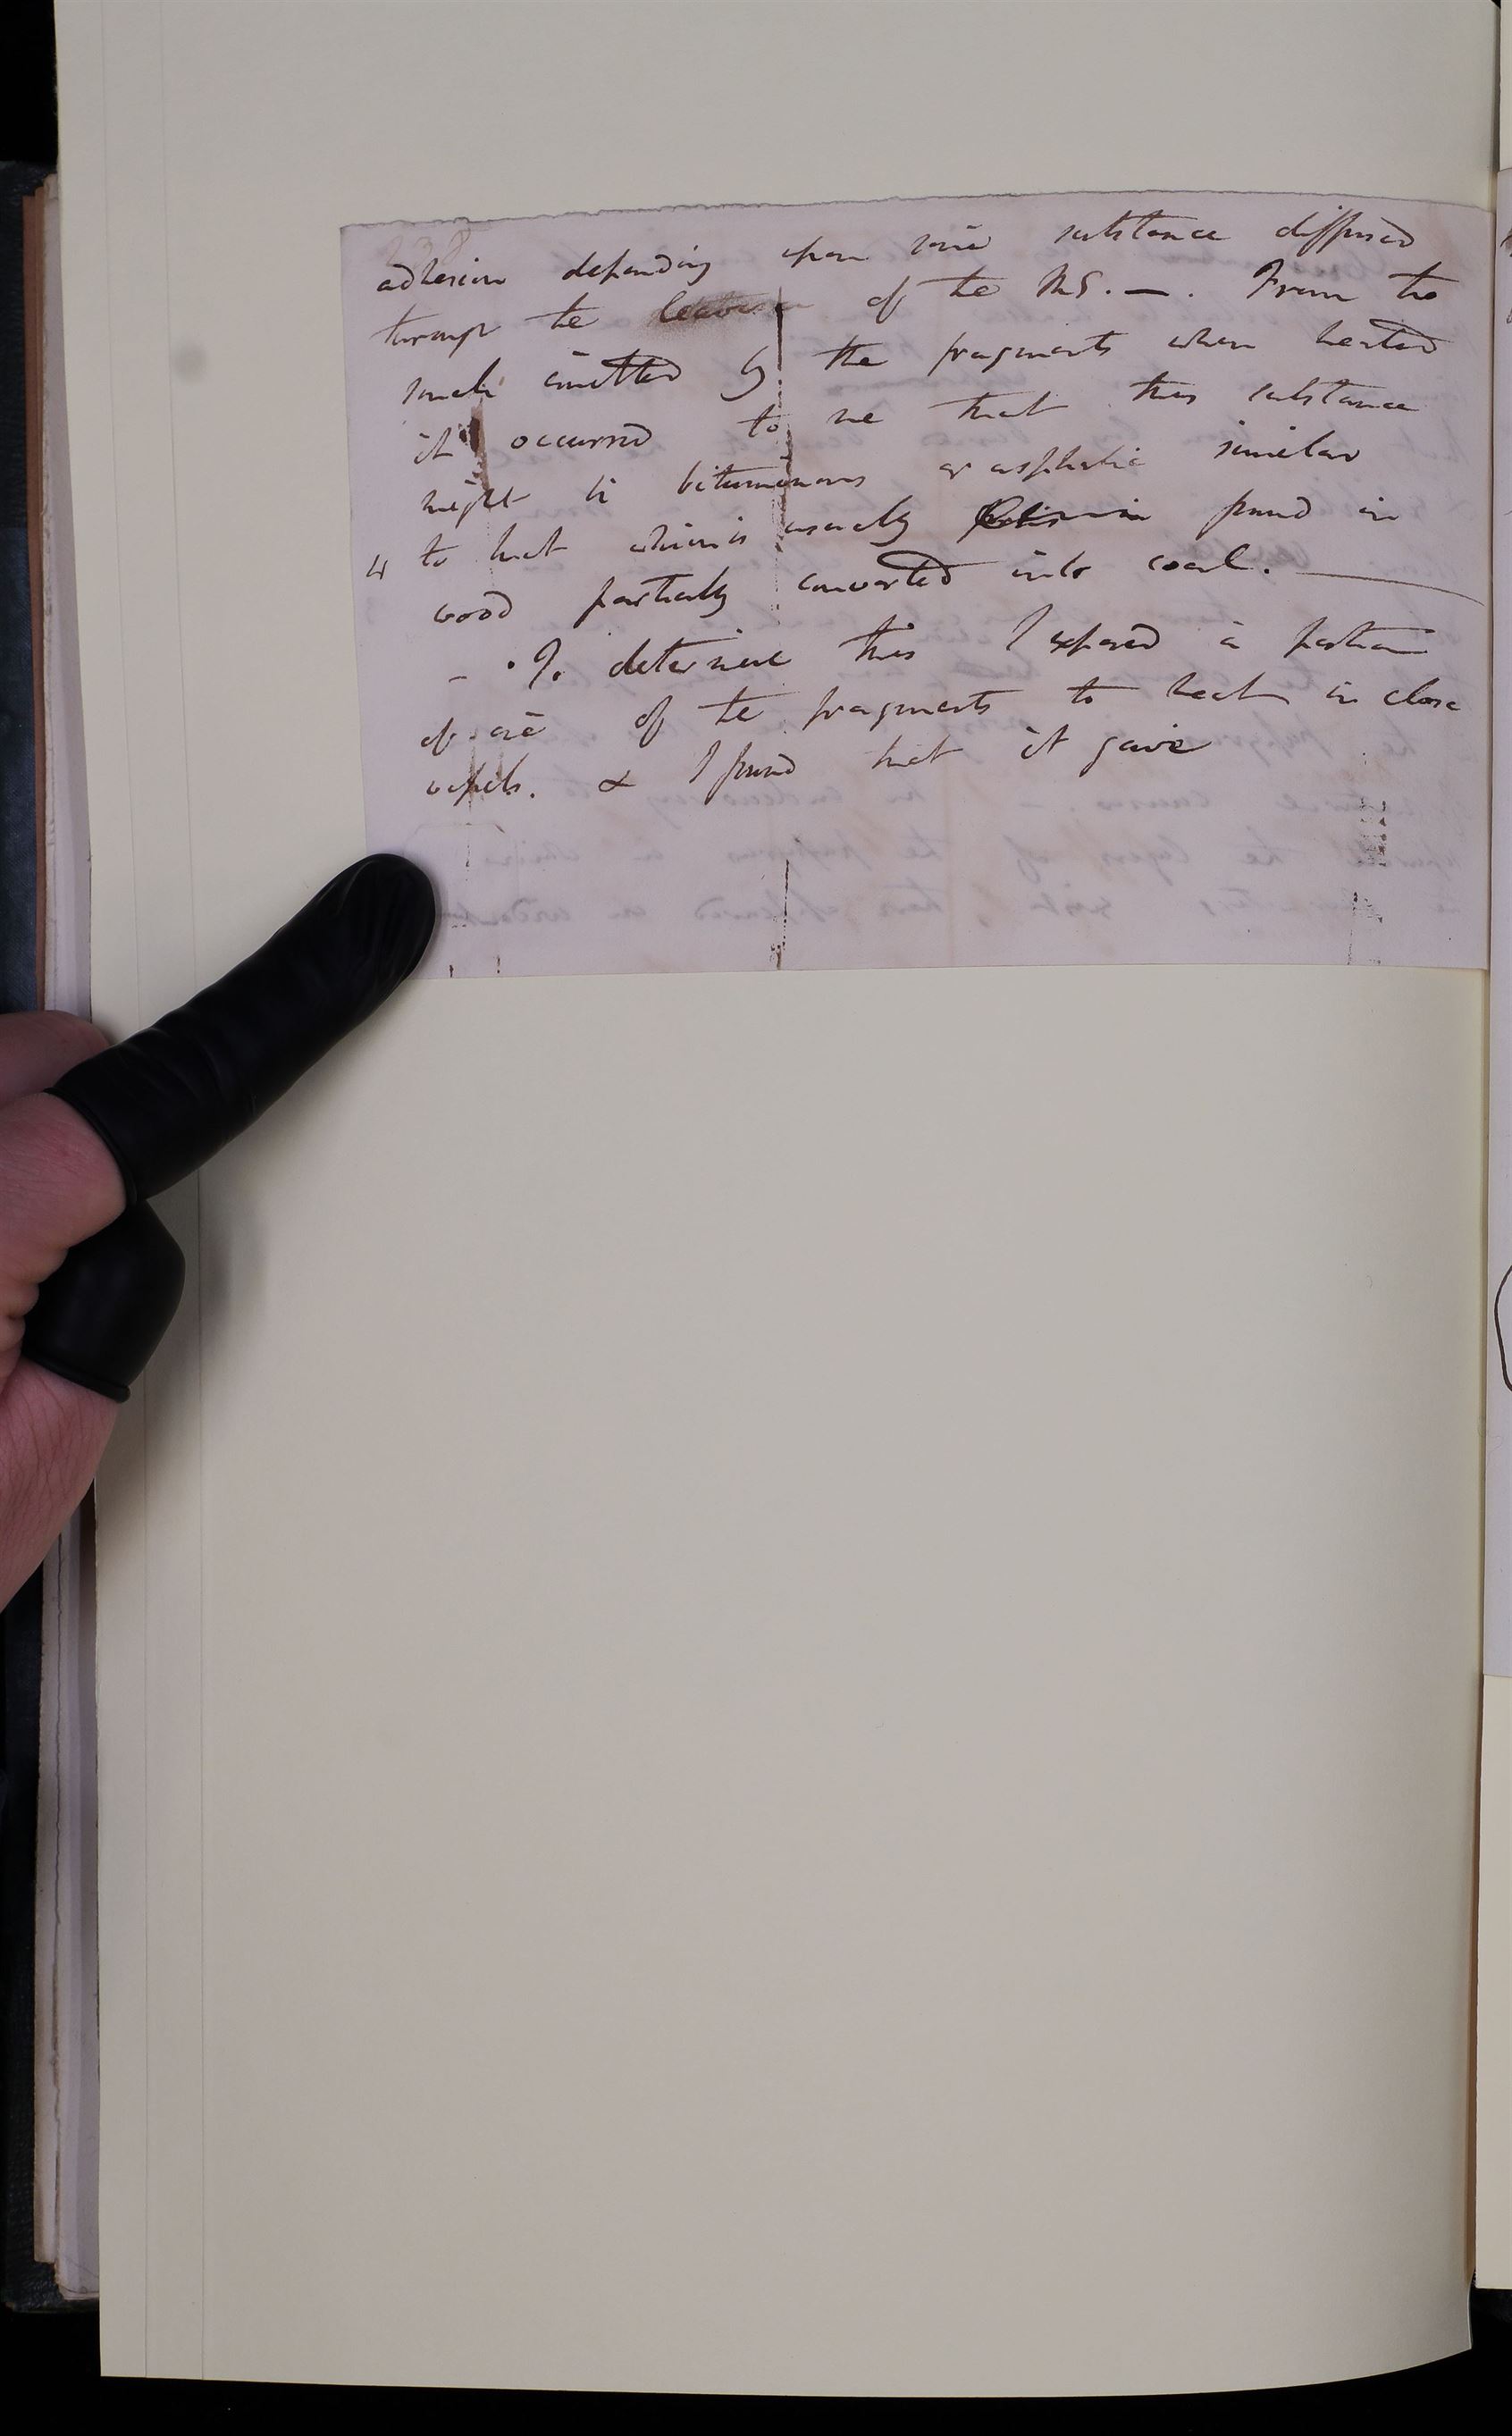 adhesion depending upon some substance diffused
through the leaves of the MS. —. From the
smell emitted by the fragments when heated
it occurred to me that this substance
might be bituminous or asphaltic similar
4 to that which is usually found in
wood partially converted into coal. —
– . To determine this I exposed a portion
of one of the fragments to heat in close
vessels. & I found that it gave